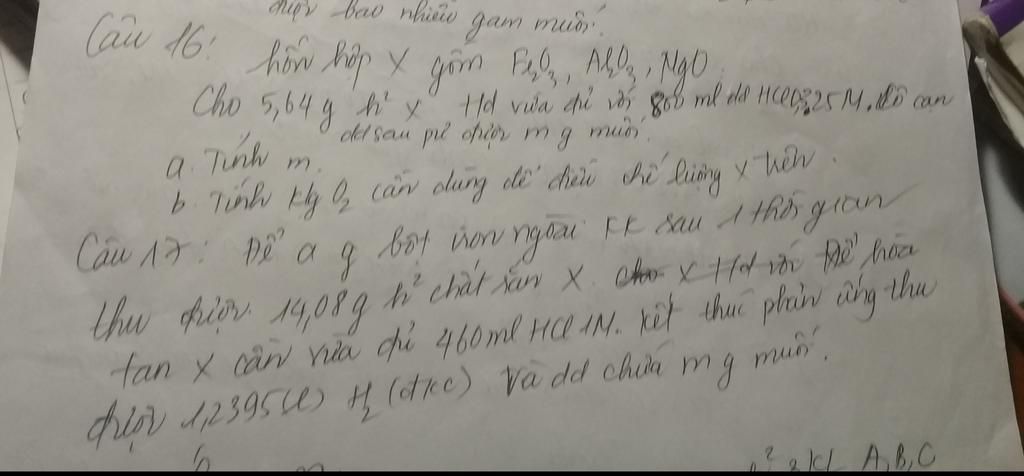 được bao nhiêu gam muối.
Câu 16:
hỗn hợp X gồm Fe2O3, Al2O3, MgO.
Cho 5,64 g h² X ttd vừa đủ với 800 ml dd HCl 0,325M. Cô cạn
dd sau pứ được m g muối.
a. Tính m.
b. Tính klg O2 cần dùng để điều chế lượng X trên.
Câu 17: Để a g bột iron ngoài KK sau 1 thời gian
thu được 14,08g h² chất rắn X. Để hòa
tan X cần vừa đủ 460ml HCl 1M. Kết thúc phản ứng thu
được 1,2395(l) H2 (đkc) và dd chứa m g muối.
A, B, C